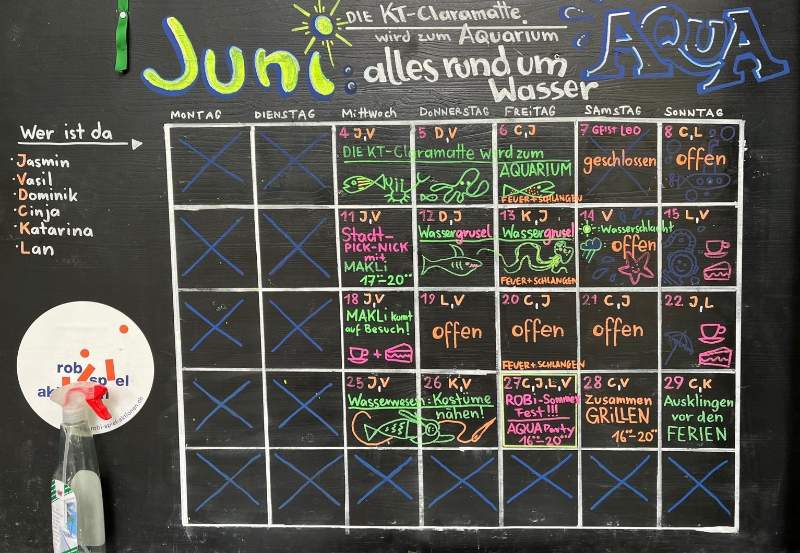 Juni:
DIE KT-Claramatte
wird zum Aquarium
alles rund um
Wasser
AQUA
MONTAG DIENSTAG Mittwoch DONNERSTAG FREITAG SAMSTAG SONNTAG
Wer ist da
·Jasmin
·Vasil
·Dominik
·Cinja
·Katarina
·Lan
4 J,V
5 D,V
6 C,J
DIE KT-Claramatte wird zum
AQUARIUM
FEUER+SCHLANGEN
7 GEIST LEO
geschlossen
8 C,L
offen
11 J,V
Stadt-
PICK-NICK
mit
MAKLi
17°°-20°°
12 D,J
Wassergrusel
13 K,J
Wassergrusel
FEUER+SCHLANGEN
14 V
Wasserschlacht
offen
15 L,V
18 J,V
MAKLi kommt
auf Besuch!
+
19 L,V
offen
20 C,J
offen
FEUER+SCHLANGEN
21 C,J
offen
22 J,L
25 J,V
26 K,V
Wasserwesen:Kostüme
nähen!
27 C,J,L,V
ROBi-Sommer
Fest!!!
AQUA Party
16°°-20°°
28 C,V
Zusammen
GRiLLEN
16°°-20°°
29 C,K
Ausklingen
vor den
FERIEN
rob
spiel